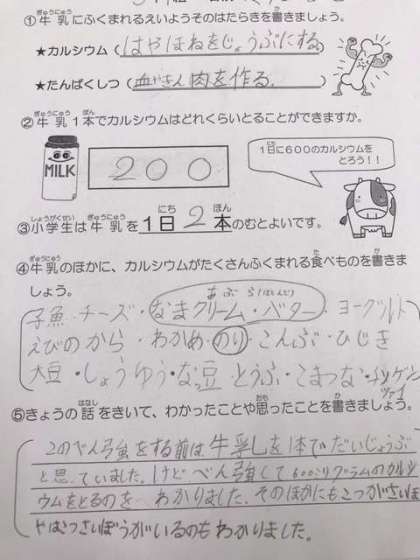 ①牛乳にふくまれるえいようそのはたらきを書きましょう。
★カルシウム(はやほねをじょうぶにする)
★たんぱくしつ(血がきん肉を作る)
②牛乳1本でカルシウムはどれくらいとることができますか。
MILK
200
1日に600のカルシウムを
とろう!!
③小学生は牛乳を1日2本のむとよいです。
④牛乳のほかに、カルシウムがたくさんふくまれる食べものを書きま
しょう。
子魚・チーズ・なまクリーム・バター・ヨーグルト
えびのから わかめ・のり・こんぶ・ひじき
大豆・しょうゆう・なっ豆 とうふ・こまつな・
⑤きょうの話をきいて、わかったことや思ったことを書きましょう。
このべん強をする前は牛乳しを1本でだいじょうぶ
と思っていました。けどべん強して600ミリグラムのカルシ
ウムをとるのを わかりました。そのほかにもこつがさいぼ
やはこつさいぼうがいるのもわかりました。